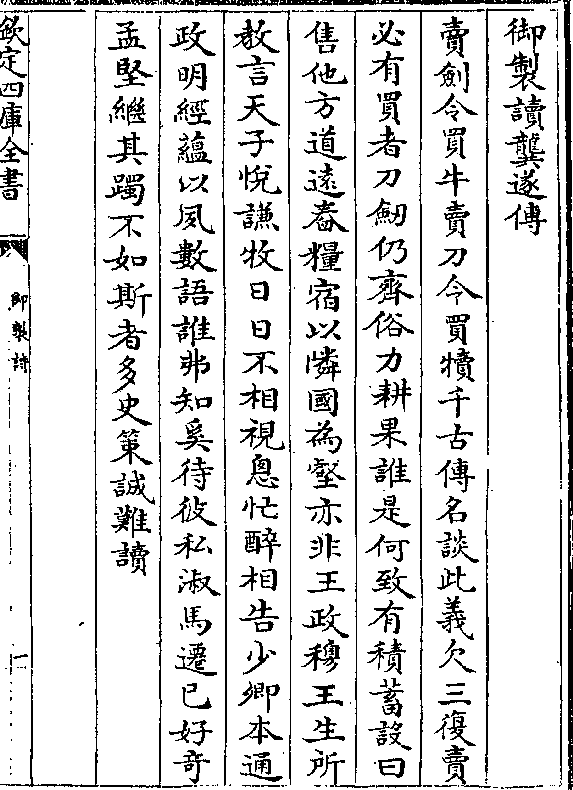 御製讀龔遂傳
賣劍令買牛賣刀令買犢千古傳名談此義欠三復賣
必有買者刀劒仍齊俗力耕果誰是何致有積蓄設曰
售他方道逺舂糧宿以憐國為壑亦非王政穆王生所
教言天子悅謙牧日日不相視恖忙醉相告少卿本通
政明經蘊以夙數語誰弗知奚待彼私淑馬遷已好竒
孟堅繼其躅不如斯者多史策誠難讀
欽定四庫全書
御製詩
一